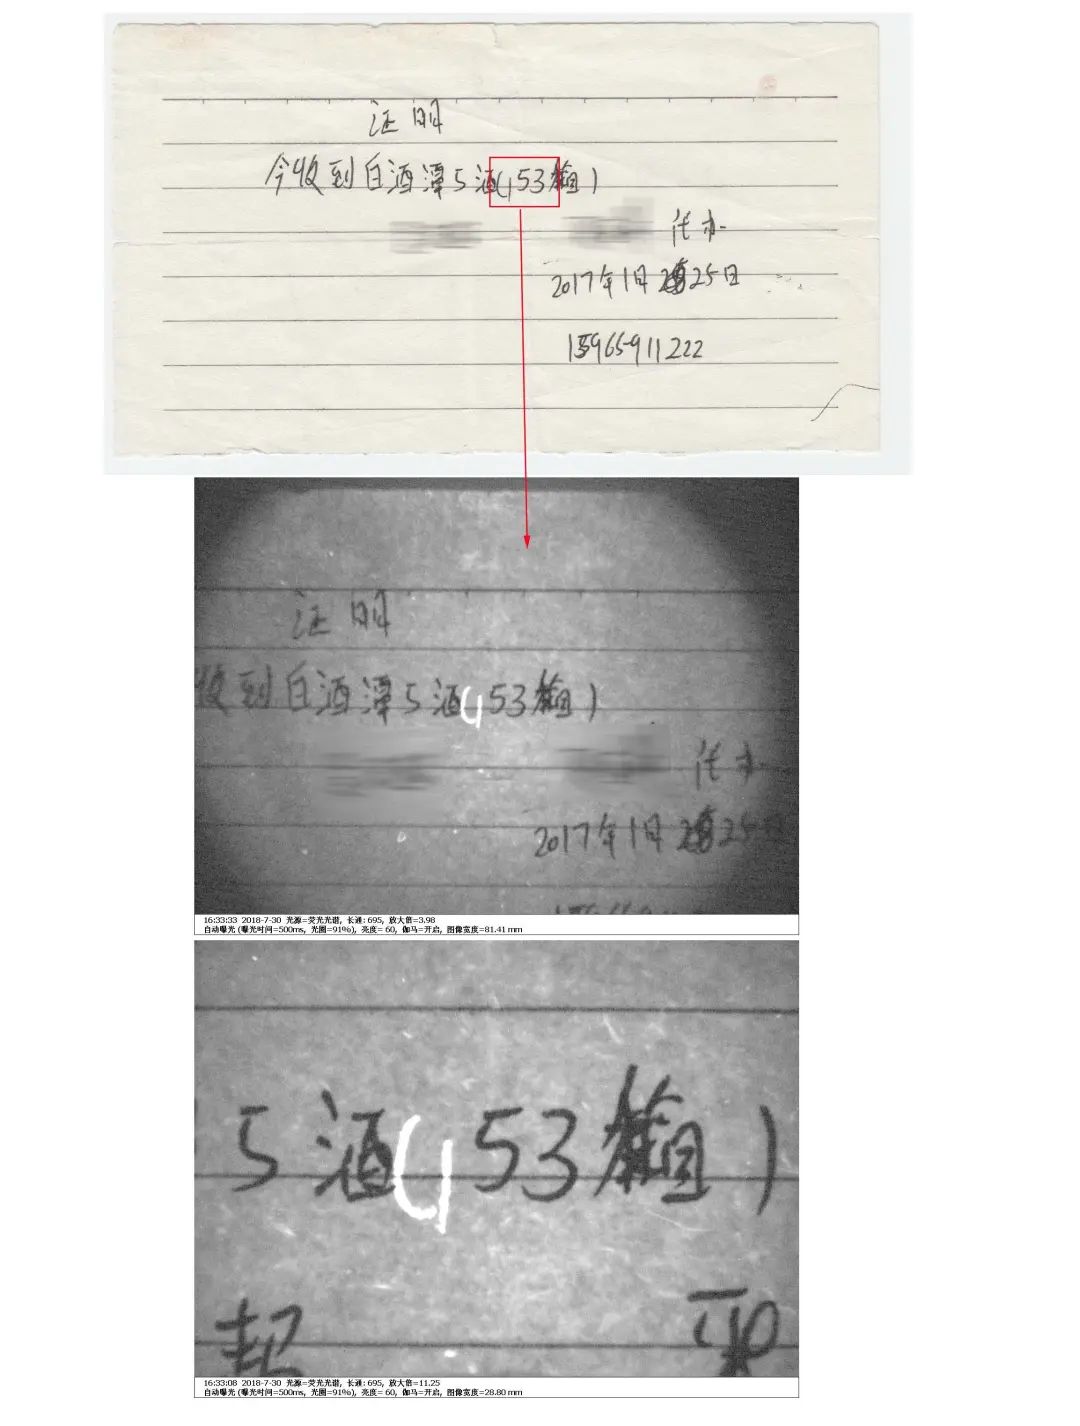 证明
今收到白酒潭5酒(153箱)
代办
2017年1月25日
15965911222
证明
收到白酒潭5酒(153箱)
代办
2017年1月25日
16:33:33 2018-7-30 光源=荧光光谱, 长通: 695, 放大倍=3.98
自动曝光 (曝光时间=500ms, 光圈=91%), 亮度= 60, 伽马=开启, 图像宽度=81.41 mm
5酒(153箱)
16:33:08 2018-7-30 光源=荧光光谱, 长通: 695, 放大倍=11.25
自动曝光 (曝光时间=500ms, 光圈=91%), 亮度= 60, 伽马=开启, 图像宽度=28.80 mm